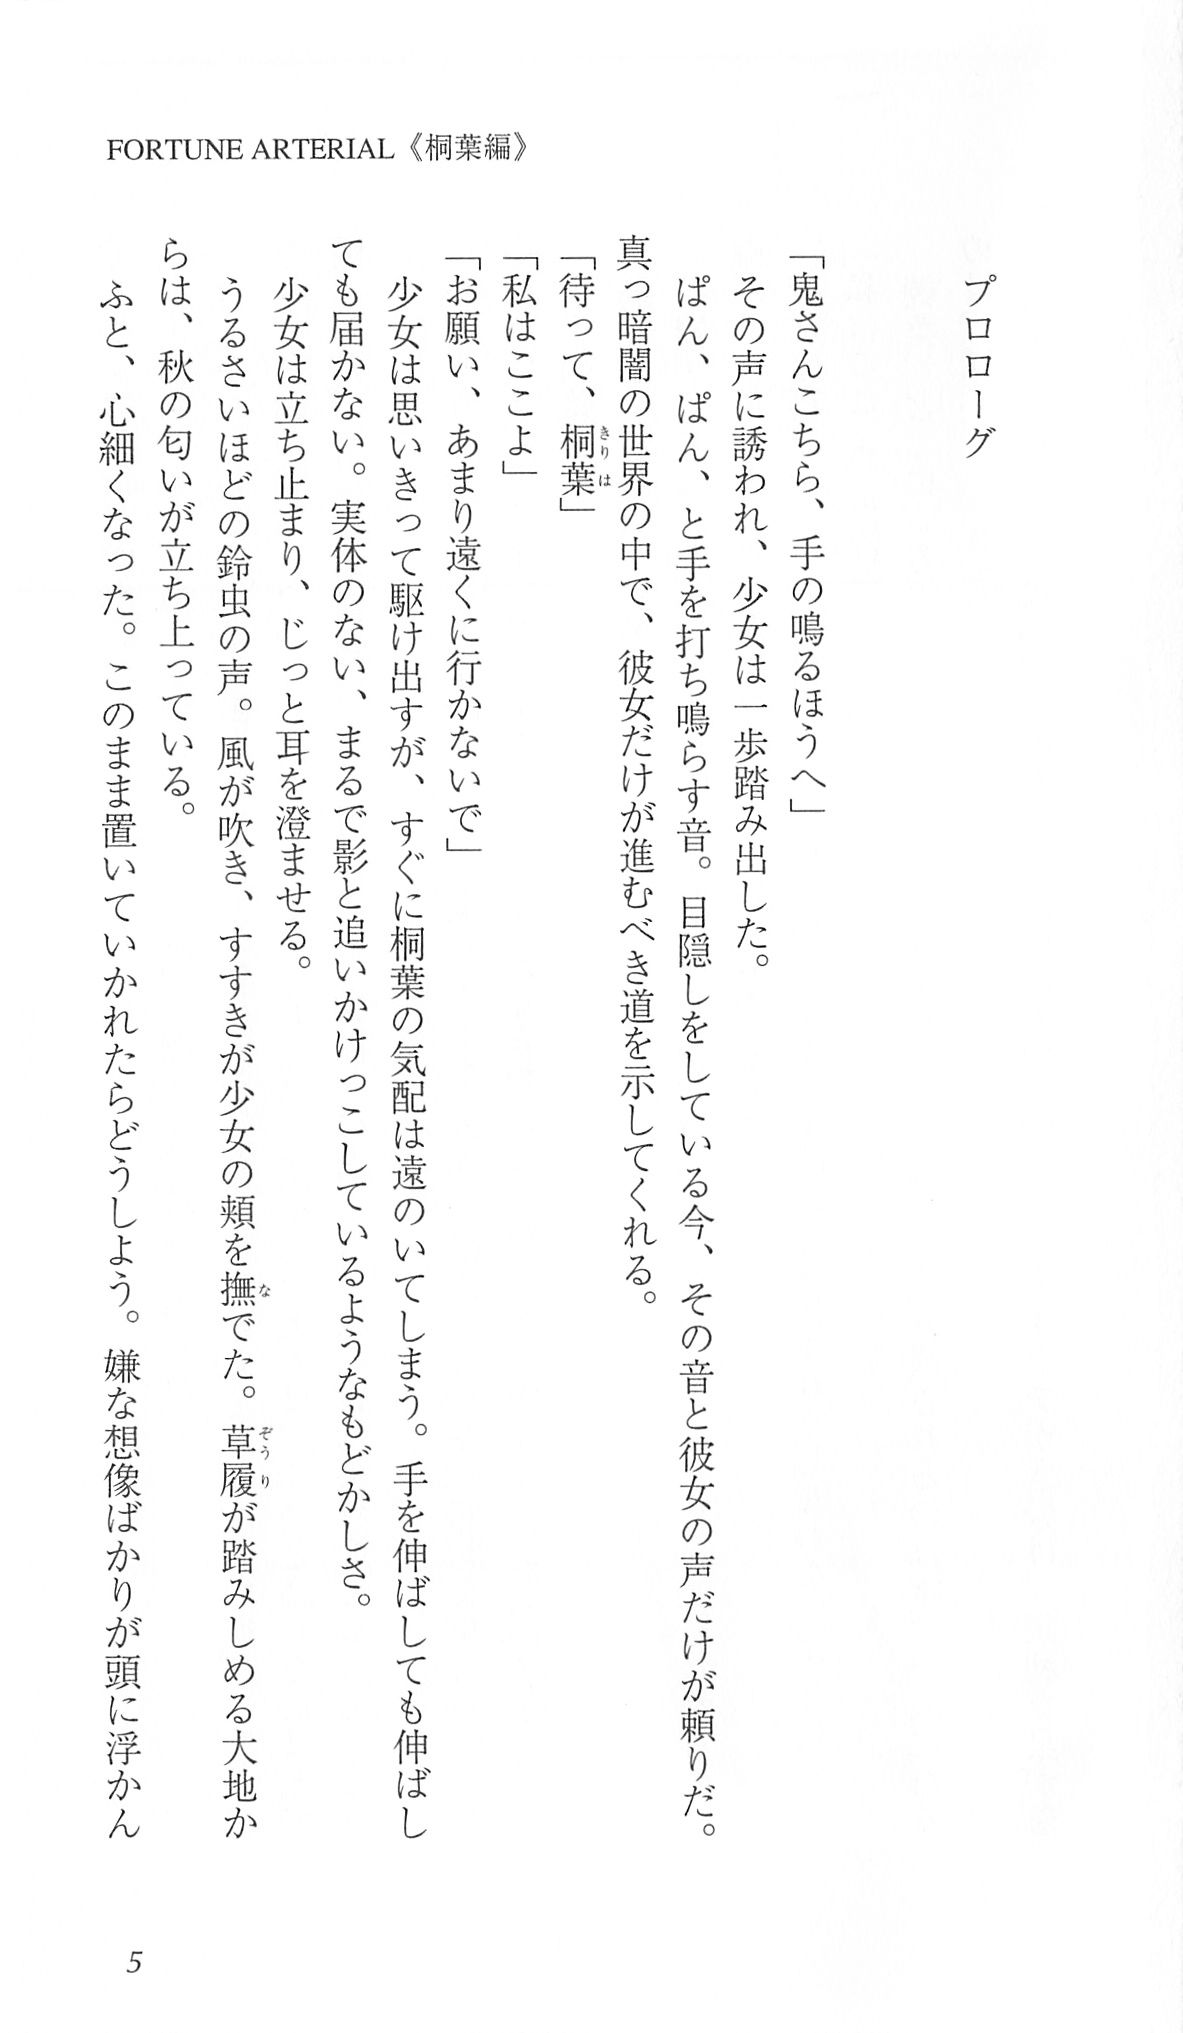 FORTUNE ARTERIAL《桐葉編》
プロローグ
「鬼さんこちら、手の鳴るほうへ」
その声に誘われ、少女は一歩踏み出した。
ぱん、ぱん、と手を打ち鳴らす音。目隠しをしている今、その音と彼女の声だけが頼りだ。
真っ暗闇の世界の中で、彼女だけが進むべき道を示してくれる。
「待って、桐葉」
きりは
「私はここよ」
「お願い、あまり遠くに行かないで」
少女は思いきって駆け出すが、すぐに桐葉の気配は遠のいてしまう。手を伸ばしても伸ばし
ても届かない。実体のない、まるで影と追いかけっこしているようなもどかしさ。
少女は立ち止まり、じっと耳を澄ませる。
うるさいほどの鈴虫の声。風が吹き、すすきが少女の頬を撫でた。草履が踏みしめる大地か
な
ぞうり
らは、秋の匂いが立ち上っている。
ふと、心細くなった。このまま置いていかれたらどうしよう。嫌な想像ばかりが頭に浮かん
5